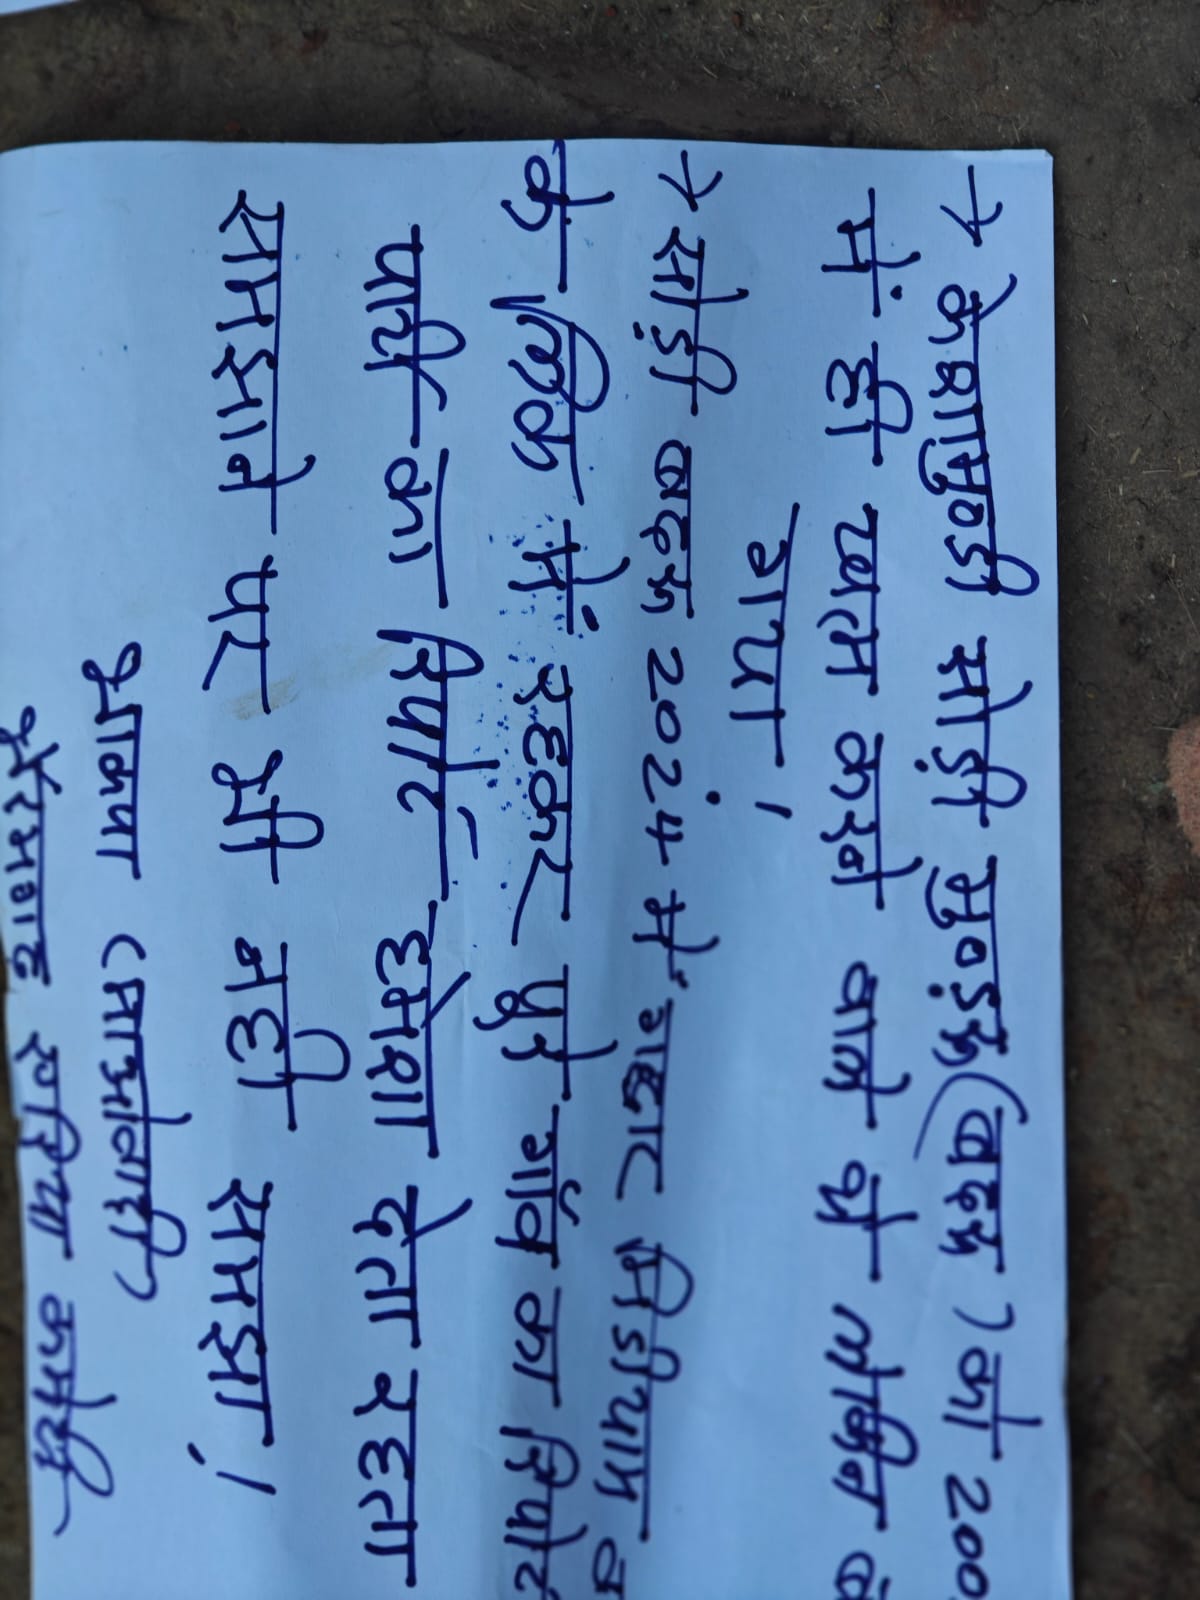 → केशामुण्डी सोड़ी मुण्ड्रू (बदरू) को 200
में ही खत्म करने वाले थे लेकिन
गया!
→ सोड़ी बदरू 2024 में गद्दार मिडीयाम व
के लिंक में रहकर पुरे गाँव का रिपोर्ट
पार्टी का रिपोर्ट हमेशा देता रहता
समझाने पर भी नही समझा!
भाकपा (माओवादी)
भैरमगढ़ एरिया कमेटी